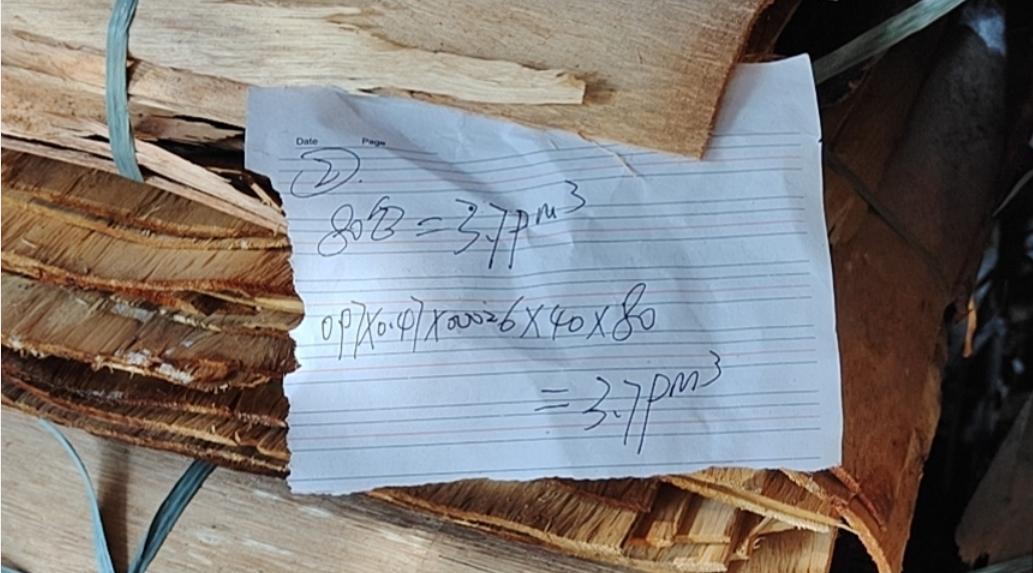 Date Page
②.
80包=3.79m³
0.97X0.47X0.0026X40X80
=3.79m³